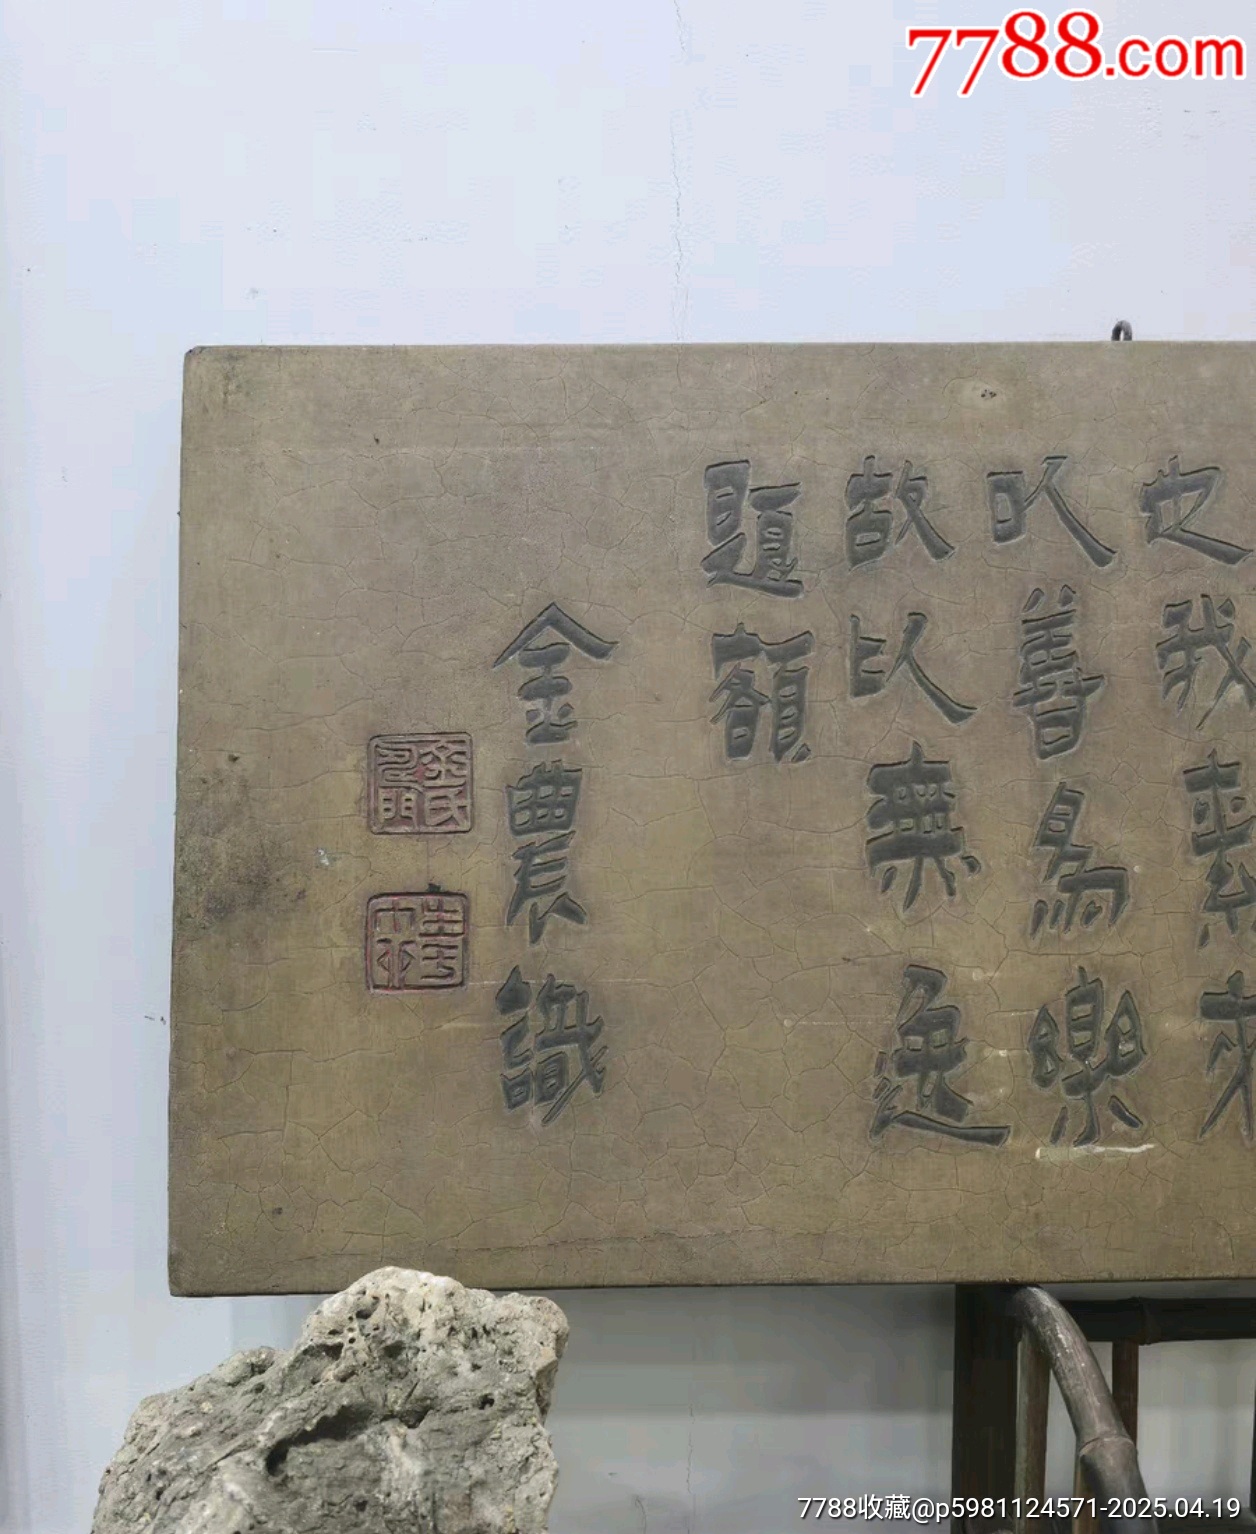 7788.com
也我素來
㕥善為樂
故以無逸
題額
金農識
7788收藏@p5981124571-2025.04.19